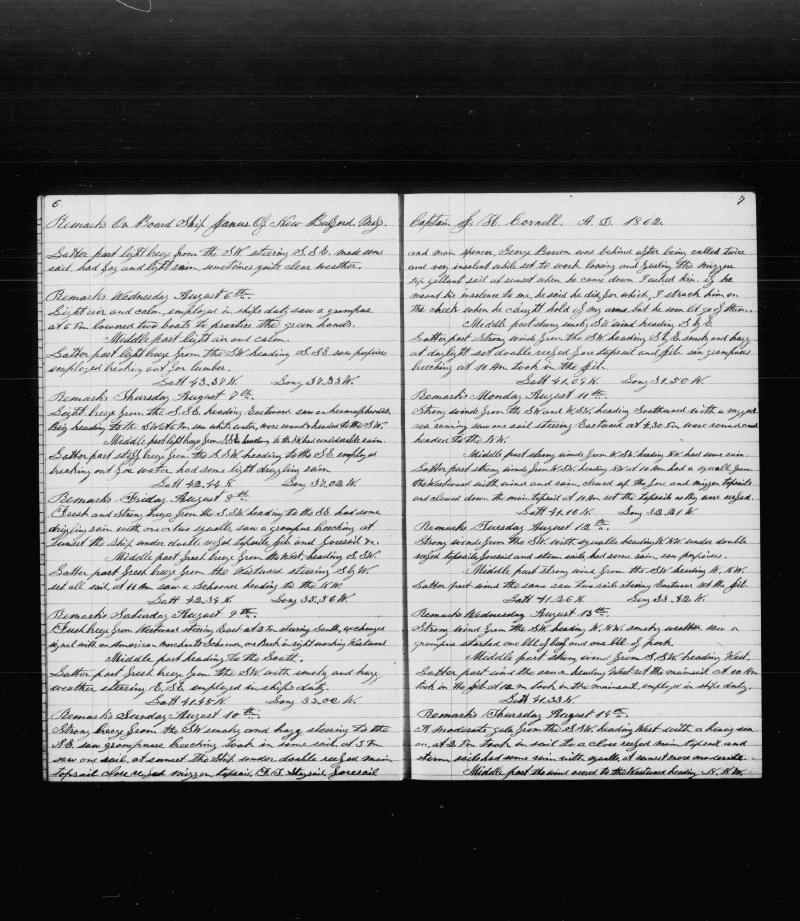 6
Remarks On Board Ship Janus Of New Bedford. Mas.
Latter part light breeze from the SW. steering S.S.E. made some
sail, had fog and light rain, sometimes quite clear weather.
Remarks Wednesday August 6th.
Light air and calm, employed in ships duty saw a grampus
at 6 Pm lowered two boats to practise the green hands.
Middle part light air and calm.
Latter part light breeze from the SW heading S.SE. saw porpoises
employed breaking out for lumber.
Latt 43.37 N. Long 37.33 W.
Remarks Thursday August 7th.
Light breeze from the S.SE heading Eastward saw an hermaphrodite
Brig heading to the SW at 6 Pm saw white water, wore round & headed to the SW.
Middle part light breeze from S.SE heading to the SW had considerable rain.
Latter part stiff breeze from the S.SW. heading to the S.E. employed
breaking out for water, had some light drizzling rain
Latt 42.44 N Long 37.02 W.
Remarks Friday August 8th.
Fresh and strong breeze from the S.SW. heading to the SE. had some
drizzling rain with one or two squalls, saw a grampus breeching at
sunset the ship under double reefed topsails, jib and foresail
Middle part fresh breeze from the West, heading S.SW.
Latter part fresh breeze from the Westward steering S by W.
set all sail, at 11 Am saw a Schooner heading to the NW
Latt 42.34 N Long 35.56 W.
Remarks Saturday August 9th.
Fresh breeze from Westward steering East at 2 Pm steering South, exchanged
signal with an American Merchant Schooner, one Bark in sight working Westward
Middle part heading to the South.
Latter part fresh breeze from the SW. with smoky and hazy
weather steering E.SE employed in ships duty.
Latt 41.45 N. Long 33.00 W.
Remarks Sunday August 10th.
Strong breeze from the SW smoky and hazy steering to the
SE. saw grampuses breeching took in some sail at 5 Pm
saw one sail, at sunset the Ship under double reefed main
topsail close reefed mizzen topsail, F. T. Staysail foresail
7
Captain J. H. Cornell. A. D. 1862.
and main spencer, George Borren was behind after being called twice
and very insolent while set to work loosing and furling the mizzen
top gallant sail at sunset when he came down I asked him if he
meant his insolence to me, he said he did, for which, I struck him on
the cheek when he caught hold of my arms, but he soon let go of them.
Middle part strong smoky SW wind heading S by E.
Latter part strong winds from the SW heading S by E. smoky and hazy
at daylight set double reefed fore topsail and jib saw grampuses
breeching at 10 Am took in the jib.
Latt 41.09 N. Long 31.50 W.
Remarks Monday August 11th.
Strong winds from the SW and W.SW, heading Southward with a rugged
sea running saw one sail steering Eastward at 4,30 Pm wore round and
headed to the NW.
Middle part strong winds from W.SW heading NW. had some rain.
Latter part strong winds from W.SW. heading NW at 10 Am had a squall from
the Westward with wind and rain, clewed up the fore and mizzen topsails
and clewed down the main topsail at 11 Am set the topsails as they were reefed.
Latt 41.10 N Long 32.21 W.
Remarks Tuesday August 12th.
Strong winds from the SW. with squalls heading W.NW. under double
reefed topsails, foresail and storm sails, had some rain, saw porpoises.
Middle part strong wind from the SW heading W.NW.
Latter part wind the same saw two sails steering Eastward set the jib.
Latt 41.26 N. Long 33.42 W.
Remarks Wednesday August 13th.
Strong wind from the SW heading W.NW. smoky weather saw a
grampus started one bbl of beef and one bbl of pork.
Middle part strong wind from S.SW heading West.
Latter part wind the same heading West set the mainsail at 10 Am
took in the jib at 12 m took in the mainsail, employed in ships duty.
Latt 41.33 N.
Remarks Thursday August 14th.
A moderate gale from the S.SW. heading West with a heavy sea
on, at 2 Pm took in sail to a close reefed main topsail and
storm sails had some rain with squalls, at sunset more moderate.
Middle part the wind veered to the Westward heading N.NW.